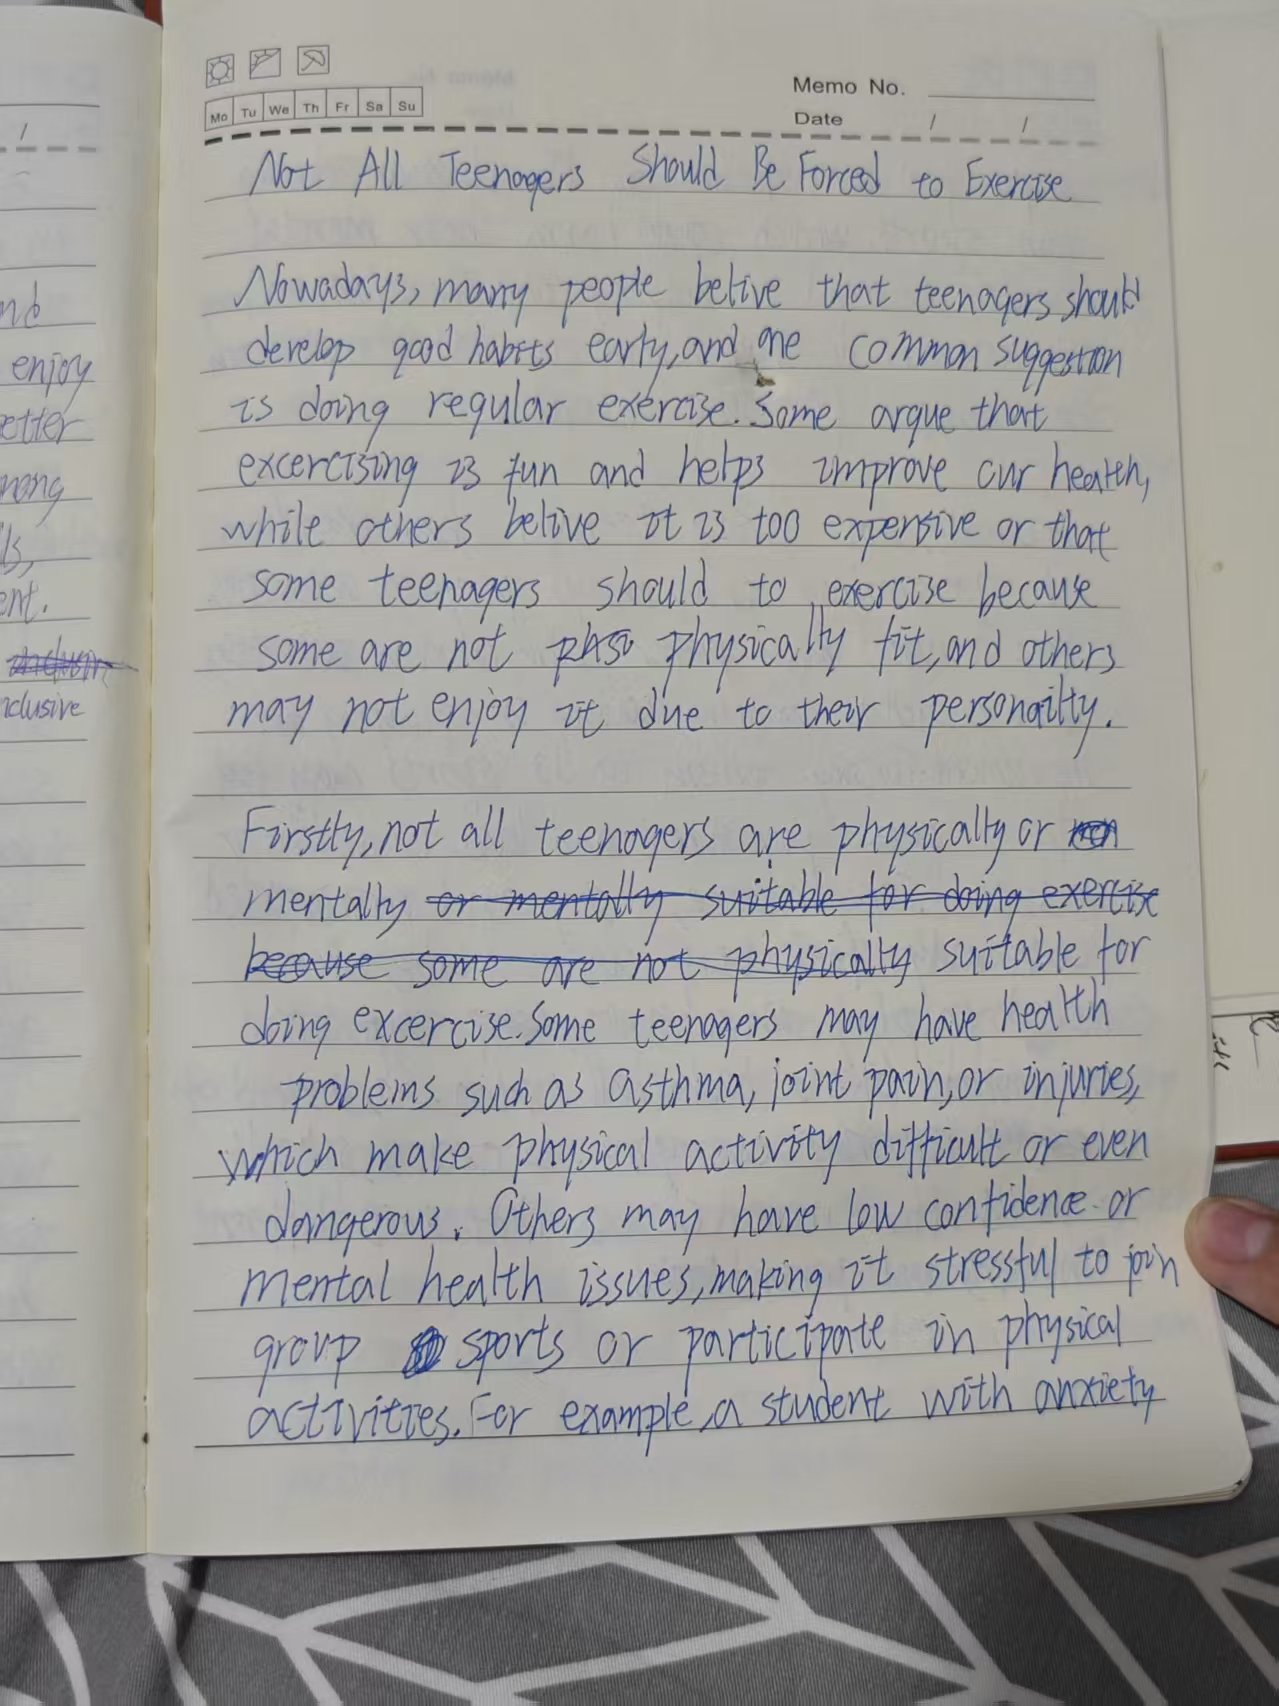 Mo Tu We Th Fr Sa Su
Memo No.
Date / /
Not All Teenagers Should Be Forced to Exercise
Nowadays, many people belive that teenagers should
develop good habits early, and one common suggestion
is doing regular exercise. Some argue that
excercising is fun and helps improve our health,
while others belive it is too expensive or that
some teenagers should to exercise because
some are not physically fit, and others
may not enjoy it due to their personailty.
Firstly, not all teenagers are physically or
mentally or mentally suitable for doing exercise
because some are not physically suitable for
doing excercise. Some teenagers may have health
problems such as asthma, joint pain, or injuries,
which make physical activity difficult or even
dangerous. Others may have low confidence or
mental health issues, making it stressful to join
group sports or participate in physical
activities. For example, a student with anxiety
enjoy
etter
nclusive